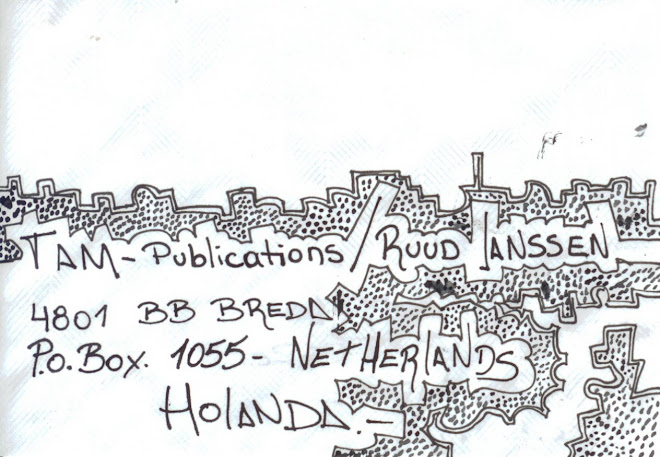 TAM-Publications/RUUD JANSSEN
4801 BB BREDA
P.O.Box. 1055- NETHERLANDS
HOLANDA.-